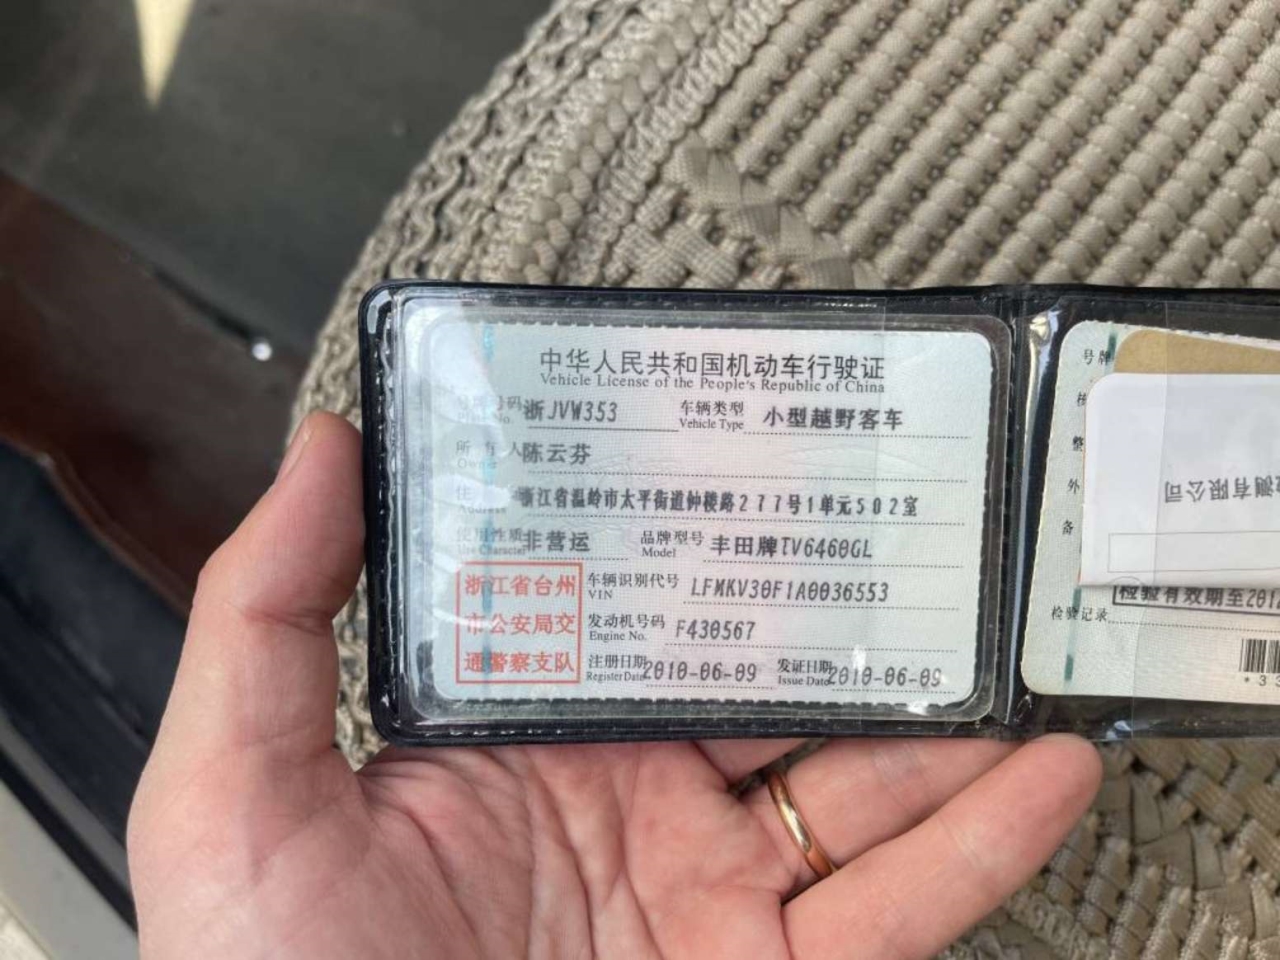 中华人民共和国机动车行驶证
Vehicle License of the People's Republic of China
号牌号码 浙JVW353 车辆类型 小型越野客车
No. Vehicle Type
所有人 陈云芬
Owner
住 浙江省温岭市太平街道钟楼路277号1单元502室
Address
使用性质 非营运 品牌型号 丰田牌TV6460GL
Use Character Model
浙江省台州
市公安局交
通警察支队
车辆识别代号 LFMKV30F1A0036553
VIN
发动机号码 F430567
Engine No.
注册日期 2010-06-09 发证日期 2010-06-09
Register Date Issue Date
号牌
核
整
外
备
检验记录
测有限公司
检验有效期至201
*33